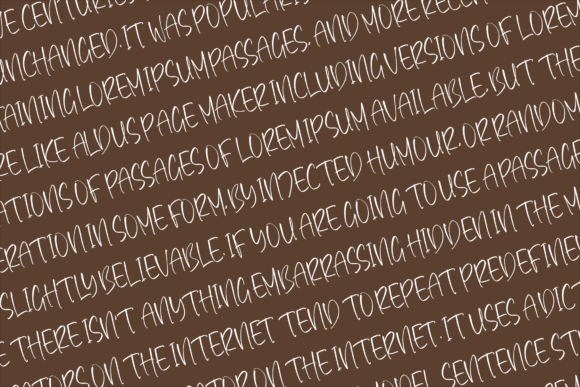 VE CENTURIES
UNCHANGED. IT WAS POPULARIS
TAINING LOREM IPSUM PASSAGES, AND MORE RECEN
RE LIKE ALDUS PAGE MAKER INCLUDING VERSIONS OF LOREM
ATIONS OF PASSAGES OF LOREM IPSUM AVAILABLE. BUT THE
ERATION IN SOME FORM. BY INJECTED HUMOUR. OR RANDOM
SLIGHTLY BELIEVABLE. IF YOU ARE GOING TO USE A PASSAGE
E THERE ISN'T ANYTHING EMBARRASSING HIDDEN IN THE M
ATORS ON THE INTERNET TEND TO REPEAT PREDEFINE
ATOR ON THE INTERNET. IT USES A DICT
MODEL SENTENCE ST